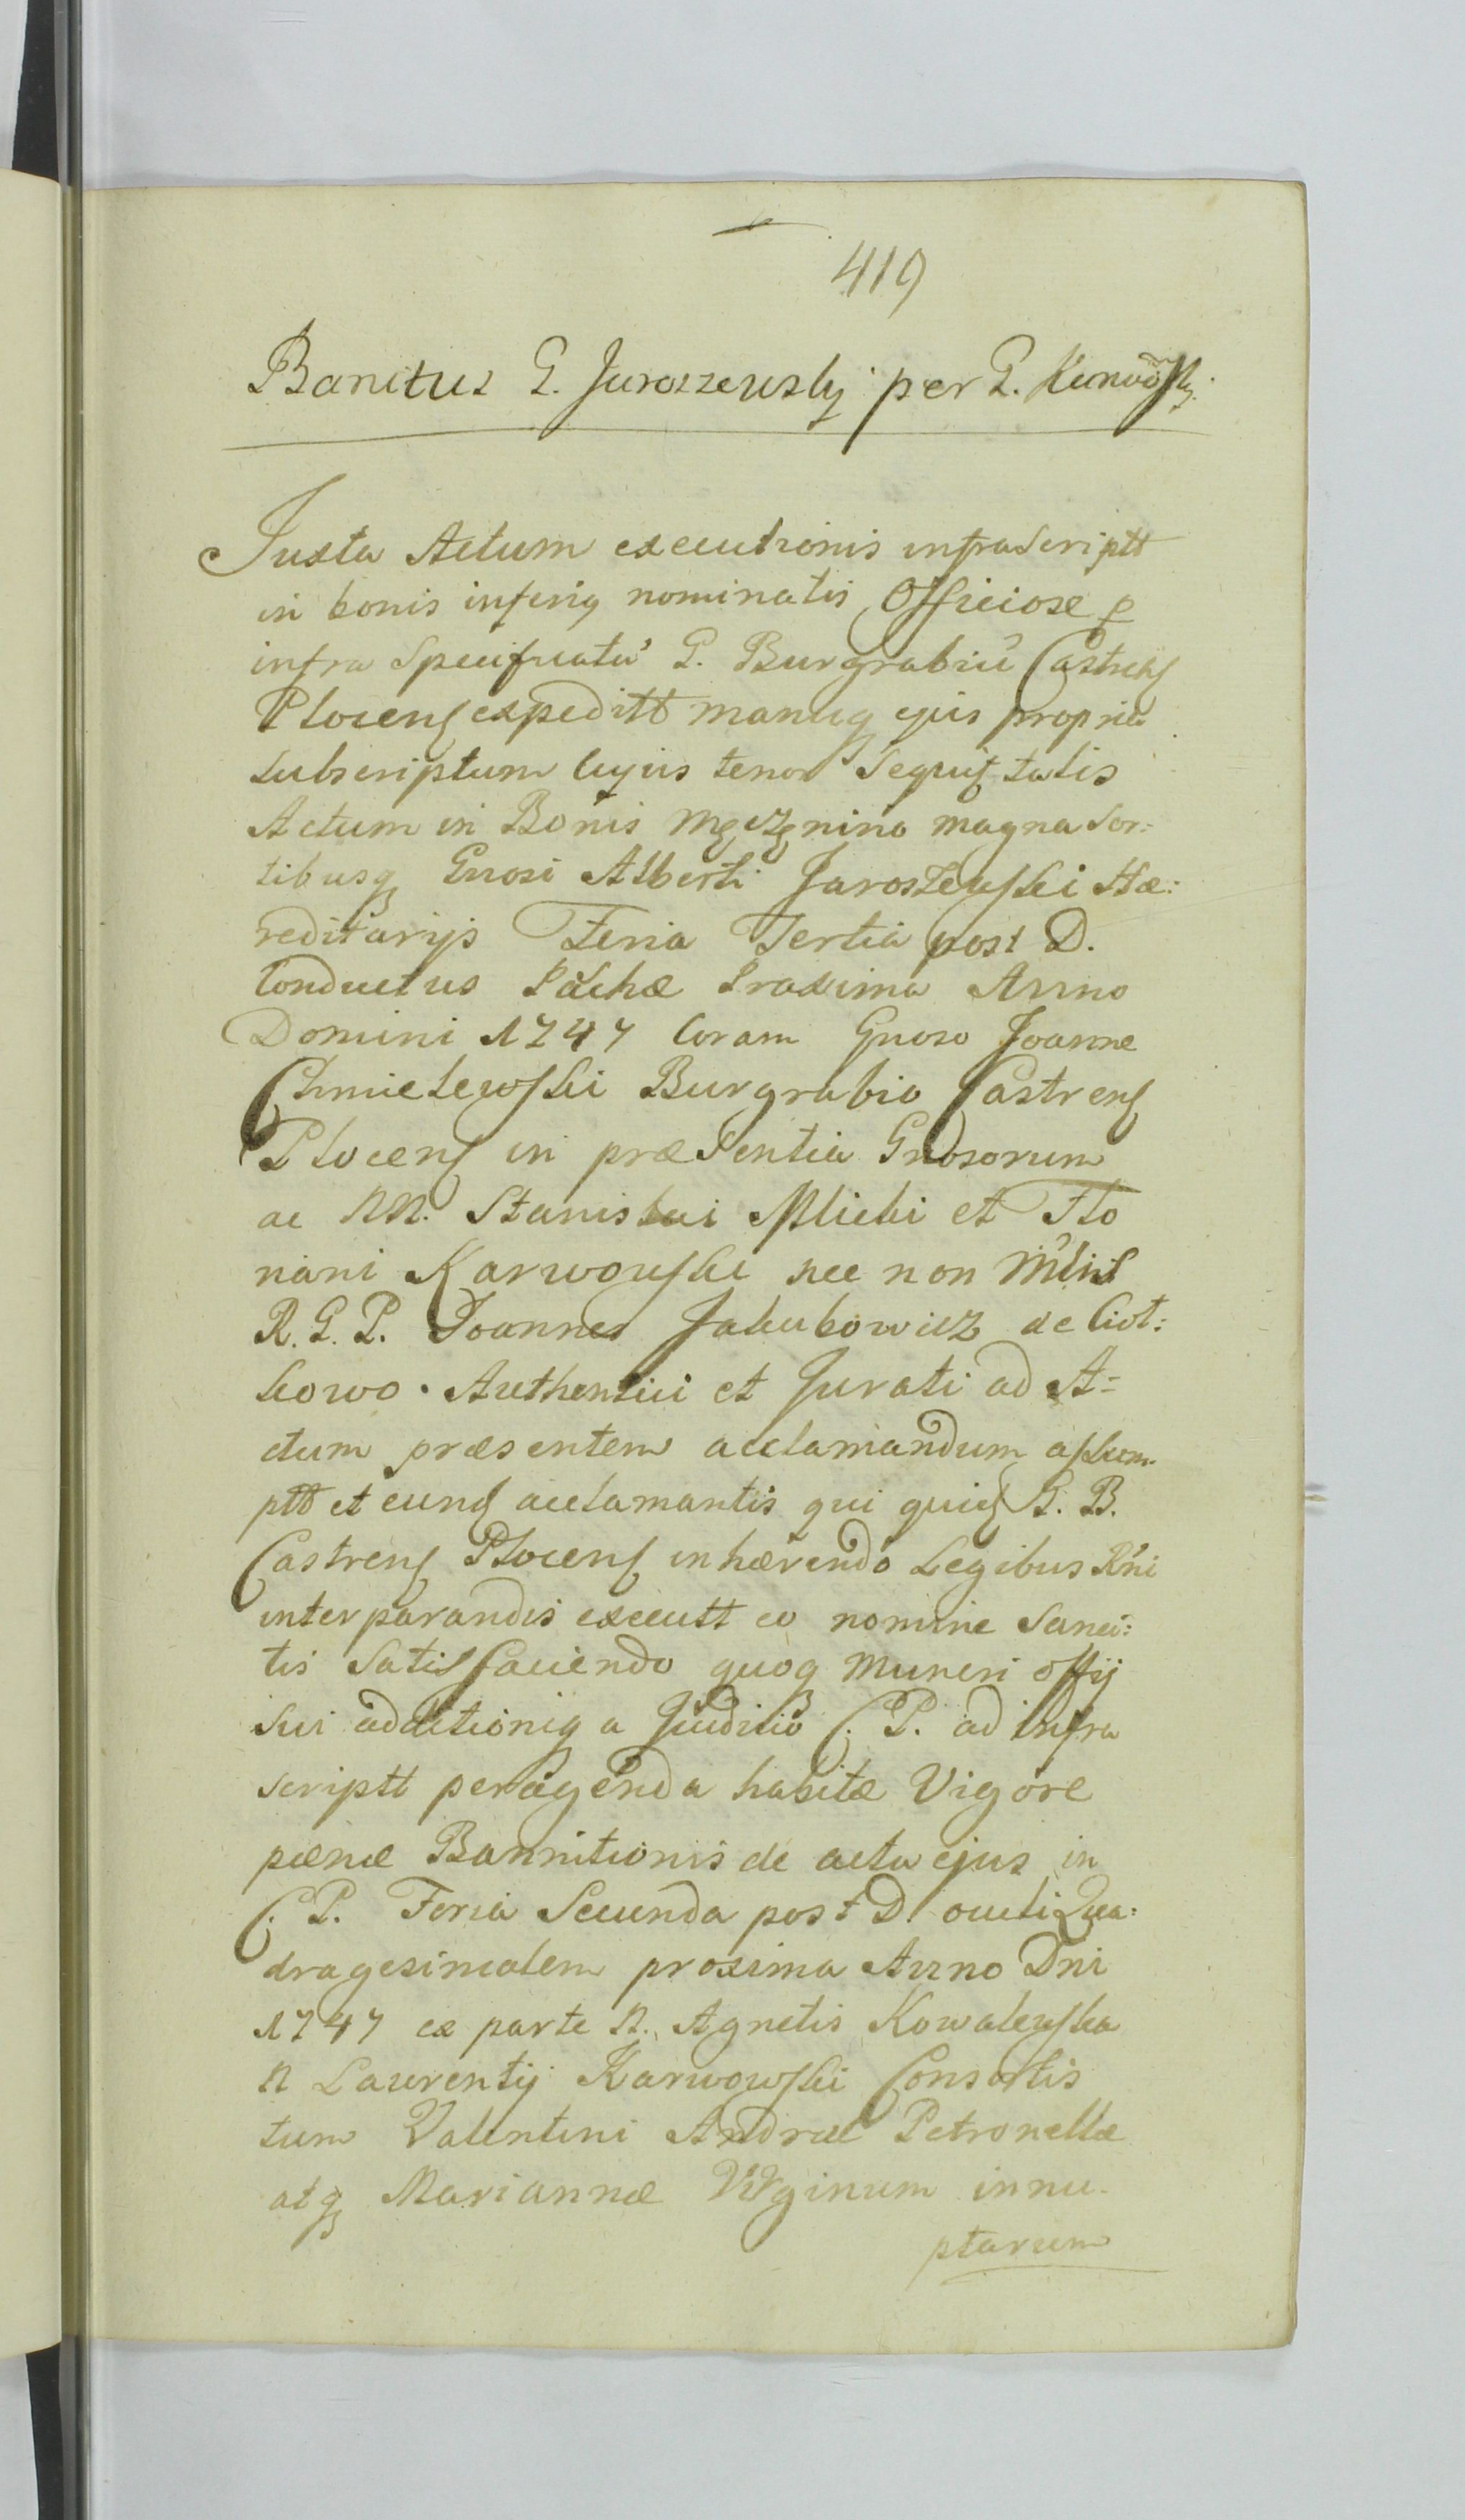 419
Banitus G. Jaroszewsky per G. Karwowsky.
Juxta Actum executionis infraScriptt
in bonis inferiq nominatis Officiose p
infra Specificatu G. Burgrabiu Castrens
Plocens expeditt manuq ejus propria
subscriptum cujus tenor Sequit talis
Actum in Bonis Męczęnino magna Sor:
tibusq Gnosi Alberti Jaroszewski Hæ:
reditarijs Feria Tertia post D.
Conductus Paschæ Proxima Anno
Domini 1747 Coram Gnoso Joanne
Chmielewski Burgrabio Castrens
Plocens in præSentia Gnosorum
ac NN. Stanislai Mlicki et Flo
riani Karwowski nec non
R. G. P. Joannes Jakubowicz de Ciot:
kowo. Authentici et Jurati ad A=
ctum præsentem acclamandum assum
ptt et eund acclamantis qui quid G. B.
Castrens Plocens inhærendo Legibus Rni
inter parandis executt eo nomine Sanci:
tis Satisfaciendo quoq Muneri Offij
Sui additioniq a Juditio C. P. ad infra
scriptt peragenda habitæ Vigore
pænæ Bannitionis de actu ejus in
C. P. Feria Secunda post D. oculi Qua:
dragesimalem proxima Anno Dni
1747 ex parte N. Agnetis Kowalewska
N Laurentij Karwowski Consortis
tum Valentini Andræ Petronellæ
atq Mariannæ Virginum innu-
ptarum